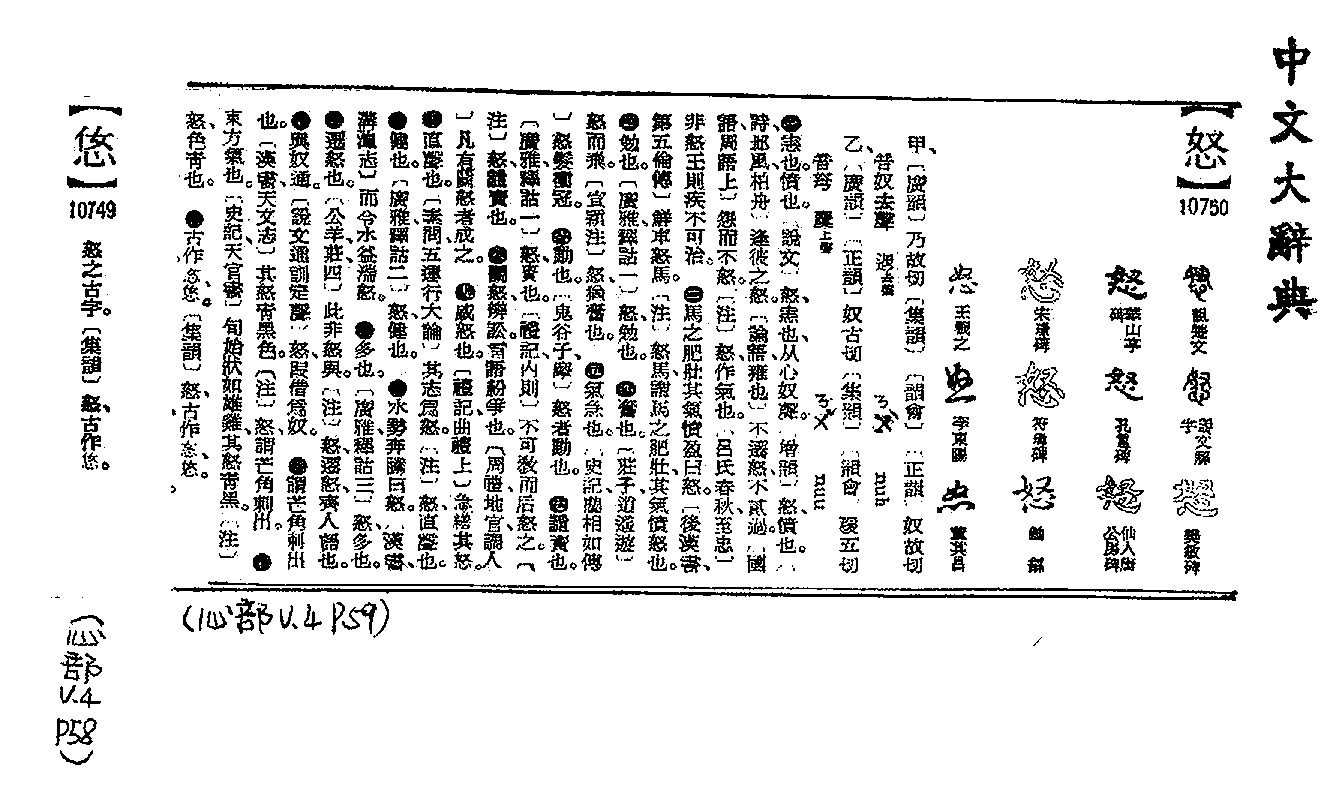 中文大辭典
【怒】
10750
詛楚文
說文解字
魏敏碑
華山亭碑
孔宙碑
仙人唐公房碑
宋璟碑
符璘碑
王羲之
李東陽
董其昌
甲、〔廣韻〕乃故切〔集韻〕〔韻會〕〔正韻〕奴故切
音奴去聲 ㄋㄨˋ nuh
乙、〔廣韻〕〔正韻〕奴古切〔集韻〕〔韻會〕暖五切
音弩 上聲 ㄋㄨˇ nuu
㊀恚也。憤也。〔說文〕怒、恚也、从心奴聲。〔增韻〕怒、憤也。〔
詩、邶風、柏舟〕逢彼之怒。〔論語、雍也〕不遷怒、不貳過。〔國
語、周語上〕怨而不怒。〔注〕怒、作氣也。〔呂氏春秋、至忠〕
非怒王則疾不可治。㊁馬之肥壯其氣憤盈曰怒。〔後漢書、
第五倫傳〕鮮車怒馬。〔注〕怒馬、謂馬之肥壯其氣憤怒也。
㊂勉也。〔廣雅、釋詁一〕怒、勉也。㊃奮也。〔莊子、逍遙遊〕
怒而飛。〔宣穎注〕怒猶奮也。㊄氣急也。〔史記、藺相如傳
〕怒髮衝冠。㊅勸也。〔鬼谷子、摩〕怒者、勸也。㊆譴責也。
〔廣雅、釋詁一〕怒、責也。〔禮記、內則〕不可教而后怒之。〔
注〕怒、譴責也。㊇鬬怒、辨訟、言語紛爭也。〔周禮、地官、調人
〕凡有鬬怒者成之。㊈威怒也。〔禮記、曲禮上〕急繕其怒。
㊉直聲也。〔素問、五運行大論〕其志爲怒。〔注〕怒、直聲也。
健也。〔廣雅、釋詁二〕怒、健也。水勢奔騰曰怒。〔漢書、
溝洫志〕而令水益湍怒。多也。〔廣雅、釋詁三〕怒、多也。
遷怒也。〔公羊、莊四〕此非怒與。〔注〕怒、遷怒、齊人語也。
與奴通。〔說文通訓定聲〕怒、叚借爲奴。謂芒角刺出
也。〔漢書、天文志〕其怒青黑色。〔注〕怒謂芒角刺出。
東方氣也。〔史記、天官書〕旬始、狀如雄雞、其怒青黑。〔注〕
怒、色青也。古作㣽、㤀。〔集韻〕怒、古作㣽、㤀。
【㤀】
10749
怒之古字。〔集韻〕怒、古作㤀。
(心部 V.4 P.59)
(心部 V.4 P58)